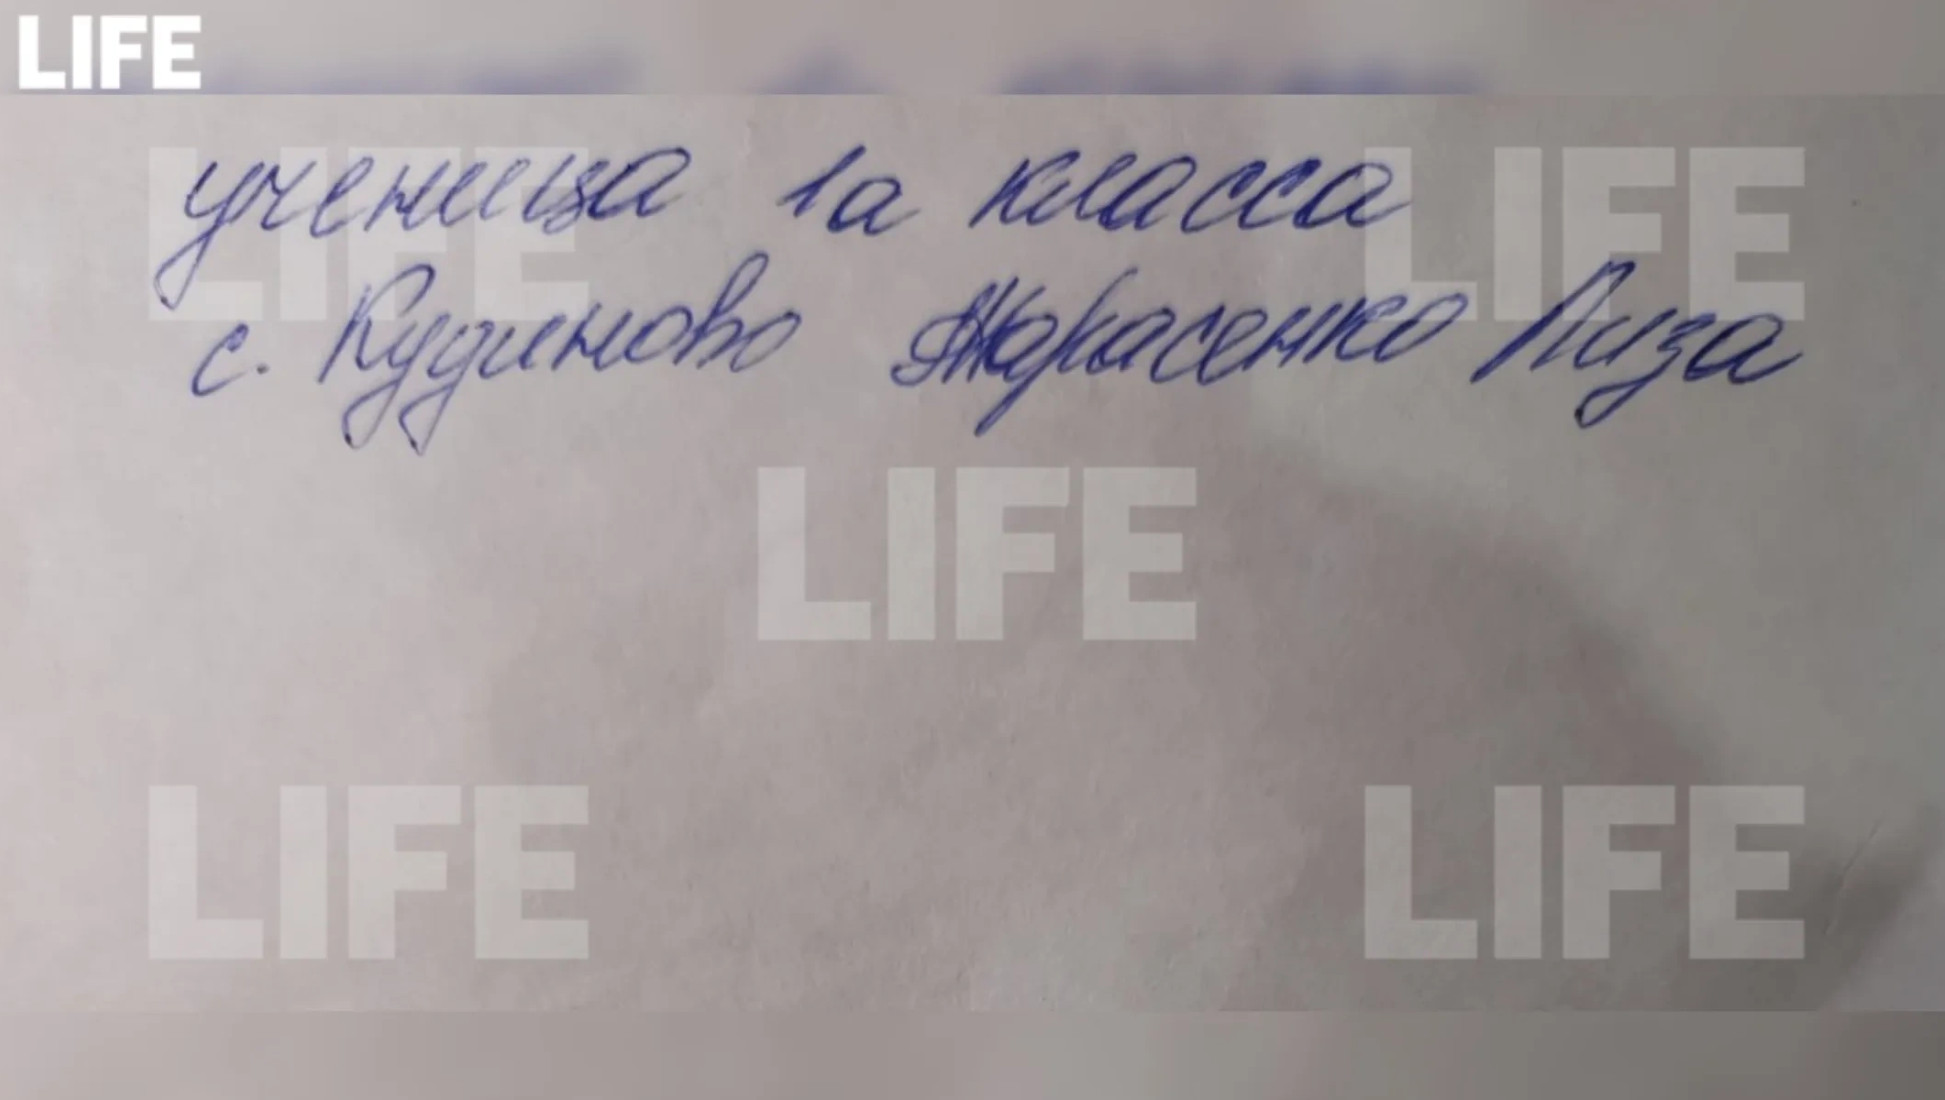 LIFE
ученица 1а класса
с. Кудиново Тарасенко Лиза
LIFE
LIFE
LIFE
LIFE
LIFE